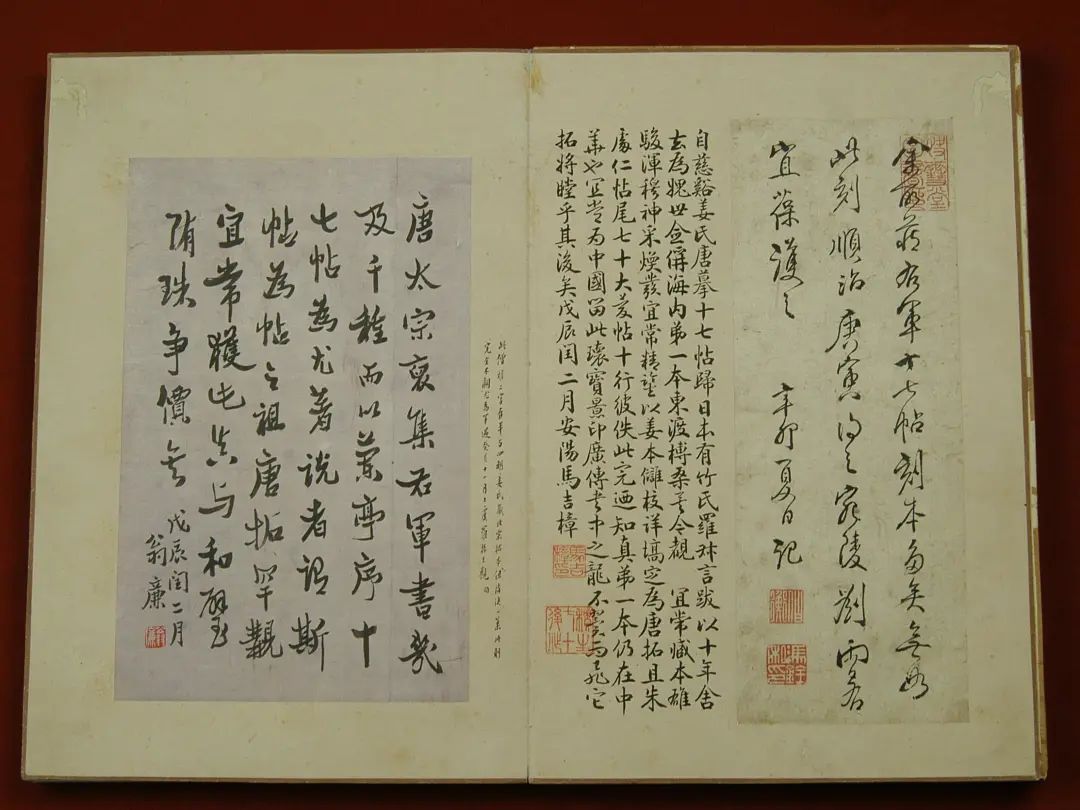 余所藏右軍十七帖刻本多矣無如
此刻順治庚寅得之宛陵劉雨若
宜葆護之 辛卯夏日記
自慈谿姜氏唐摹十七帖歸日本有竹氏羅叔言跋以十年舍
去為媿世僉儕海内第一本東渡榑桑于今覩 宜常臧本雄
駿渾穆神采煥發宜常精鑒以姜本讎校詳塙定為唐拓且朱
處仁帖尾七十大慶帖十行彼佚此完迺知真第一本仍在中
華也宜常為中國留此瓌寶景印廣傳書中之龍不脛而飛它
拓將瞠乎其後矣戊辰閏二月安陽馬吉樟
唐太宗裒集右軍書幾
及千種而以蘭亭序十
七帖為尤著說者謂斯
帖為帖之祖唐拓罕覯
宜常獲此真與和璧
隋珠爭價矣
戊辰閏二月
翁廉